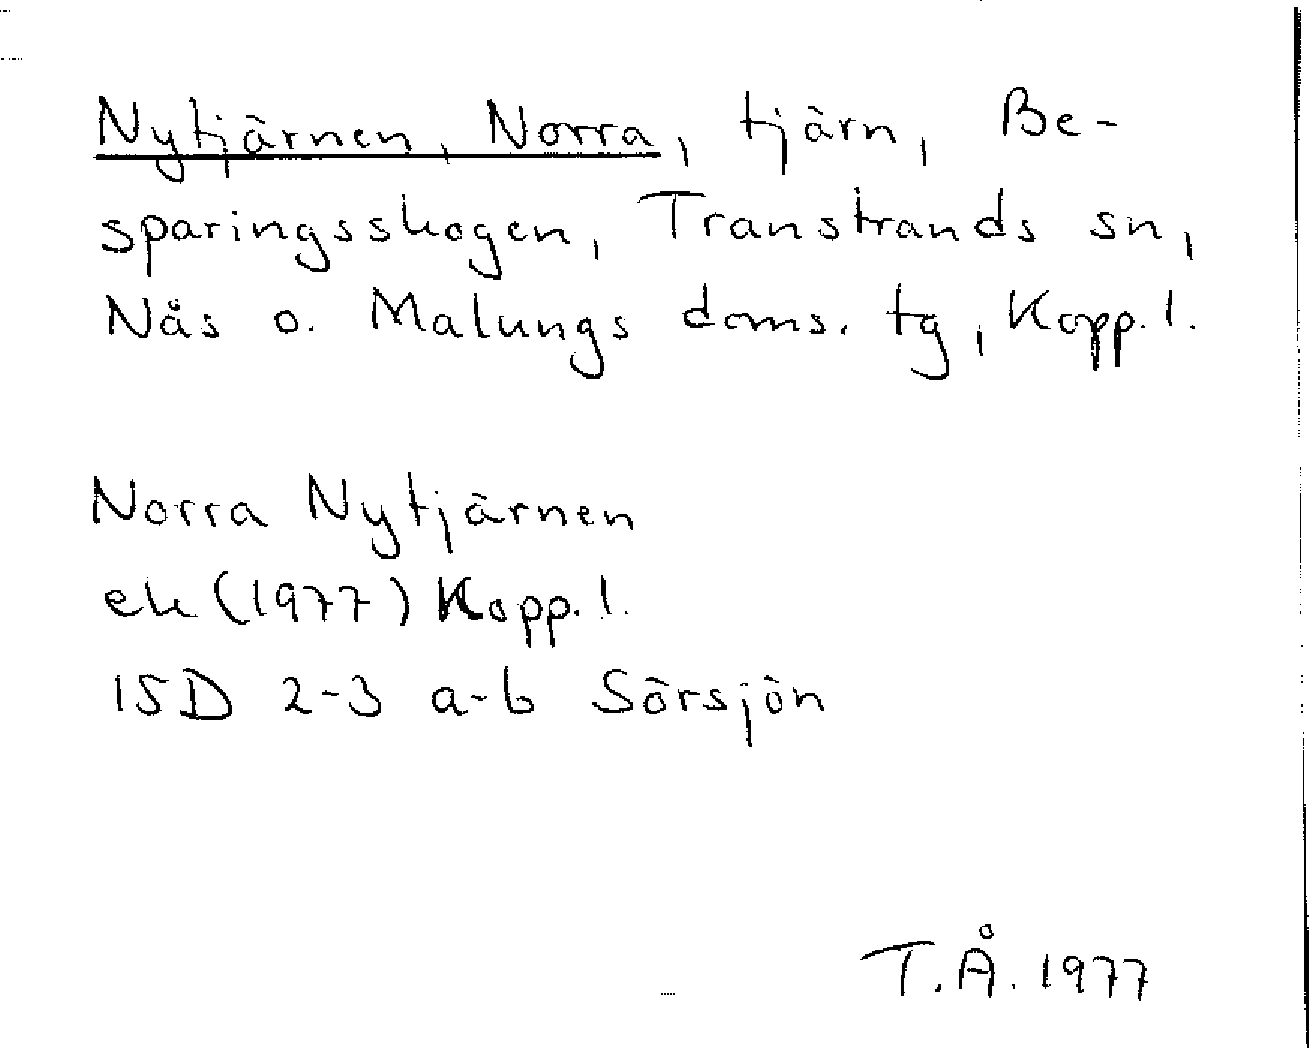 Nytjärnen, Norra, tjärn, Be-
sparingsskogen, Transtrands sn,
Nås o. Malungs doms. tg, Kopp. l.
Norra Nytjärnen
ek (1977) Kopp. l.
15D 2-3 a-b Sörsjön
T.Å. 1977